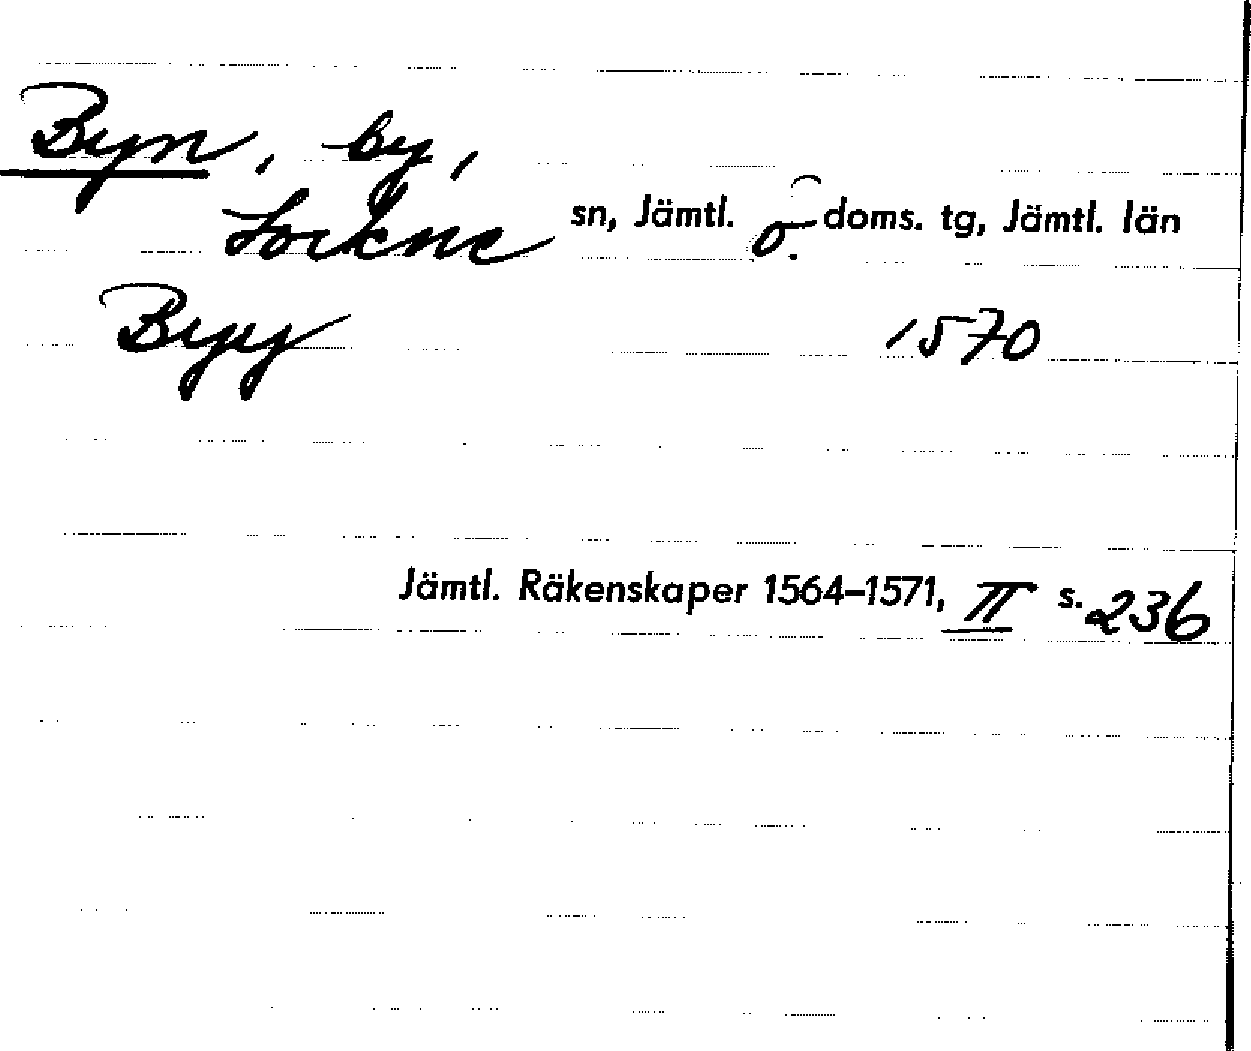 Byn, by,
Lockne sn, Jämtl. ö. doms. tg, Jämtl. län
Byy 1570
Jämtl. Räkenskaper 1564–1571, II s. 236